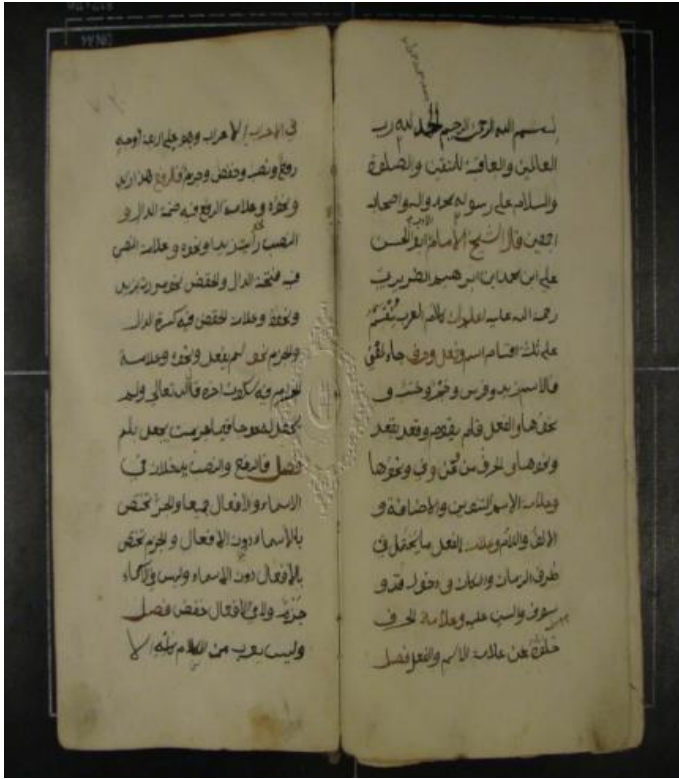 بسم الله الرحمن الرحيم الحمد لله رب
العالمين والعاقبة للمتقين والصلوة
والسلام على رسوله محمد واله واصحابه
اجمعين قال الشيخ الامام ابو الحسن
على ابن محمد بن ابرهيم الضرير
رحمة الله عليه اعلم ان كلام العرب
على ثلثة اقسام اسم وفعل وحرف جاء لمعنى
فالاسم زيد وفرس و
نحوها والفعل قام يقوم وقعد يقعد
ونحوها والحرف من وعن وفى ونحوها
وعلامة الاسم التنوين والاضافة و
الالف واللام وعلامة الفعل ما
ظرف الزمان والمكان ودخول قد و
سوف والسين عليه وعلامة الحرف
خلوه عن علامة الاسم والفعل فصل
فى الاعراب الاعراب وهو على اربعة اوجه
رفع ونصب وخفض وجزم فالرفع هذا زيد
ونحوه وعلامة الرفع فيه ضمة الدال و
النصب رايت زيدا ونحوه وعلامة النصب
فيه فتحة الدال والخفض نحو مررت بزيد
ونحوه وعلامة الخفض فيه كسرة الدال
والجزم نحو لم يفعل ونحوه وعلامة
الجزم فيه سكون اخره قال الله تعالى ولم
يجعل له عوجا قيما جزمت يجعل بلم
فصل فالرفع والنصب يدخلان فى
الاسماء والافعال جميعا والجر تختص
بالاسماء دون الافعال والجزم تختص
بالافعال دون الاسماء وليس فى الاسماء
جزم ولا فى الافعال خفض فصل
وليس يعرب من الكلام كله الا